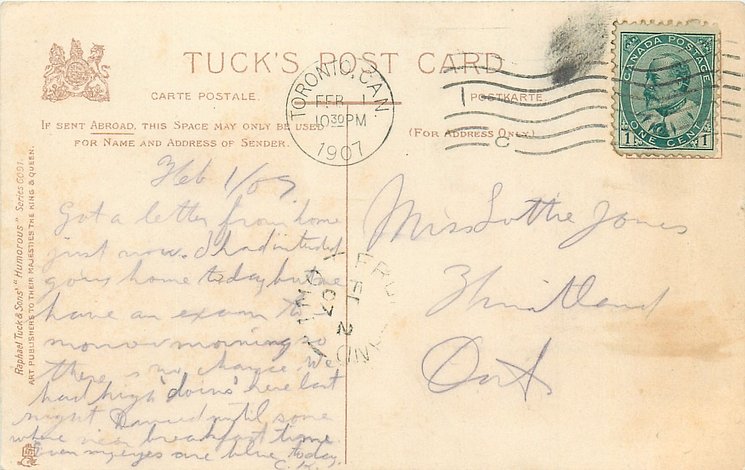 TUCK'S POST CARD
CARTE POSTALE.
POSTKARTE
IF SENT ABROAD, THIS SPACE MAY ONLY BE USED
FOR NAME AND ADDRESS OF SENDER.
(FOR ADDRESS ONLY)
TORONTO, CAN.
FEB
10 30 PM
1907
CANADA POSTAGE
ONE CENT
1 1
Raphael Tuck & Sons' "Humorous" Series 6091.
ART PUBLISHERS TO THEIR MAJESTIES THE KING & QUEEN.
Feb 1/07
Got a letter from home
just now. I had intended
going home today but we
have an exam to
morrow morning so
there is no chance. We
had high 'doins' here last
night Danced until some
where near breakfast time
Even my eyes are blue today.
Miss Lottie Jones
Fruitland
Ont
FRUITLAND
FE 2
07